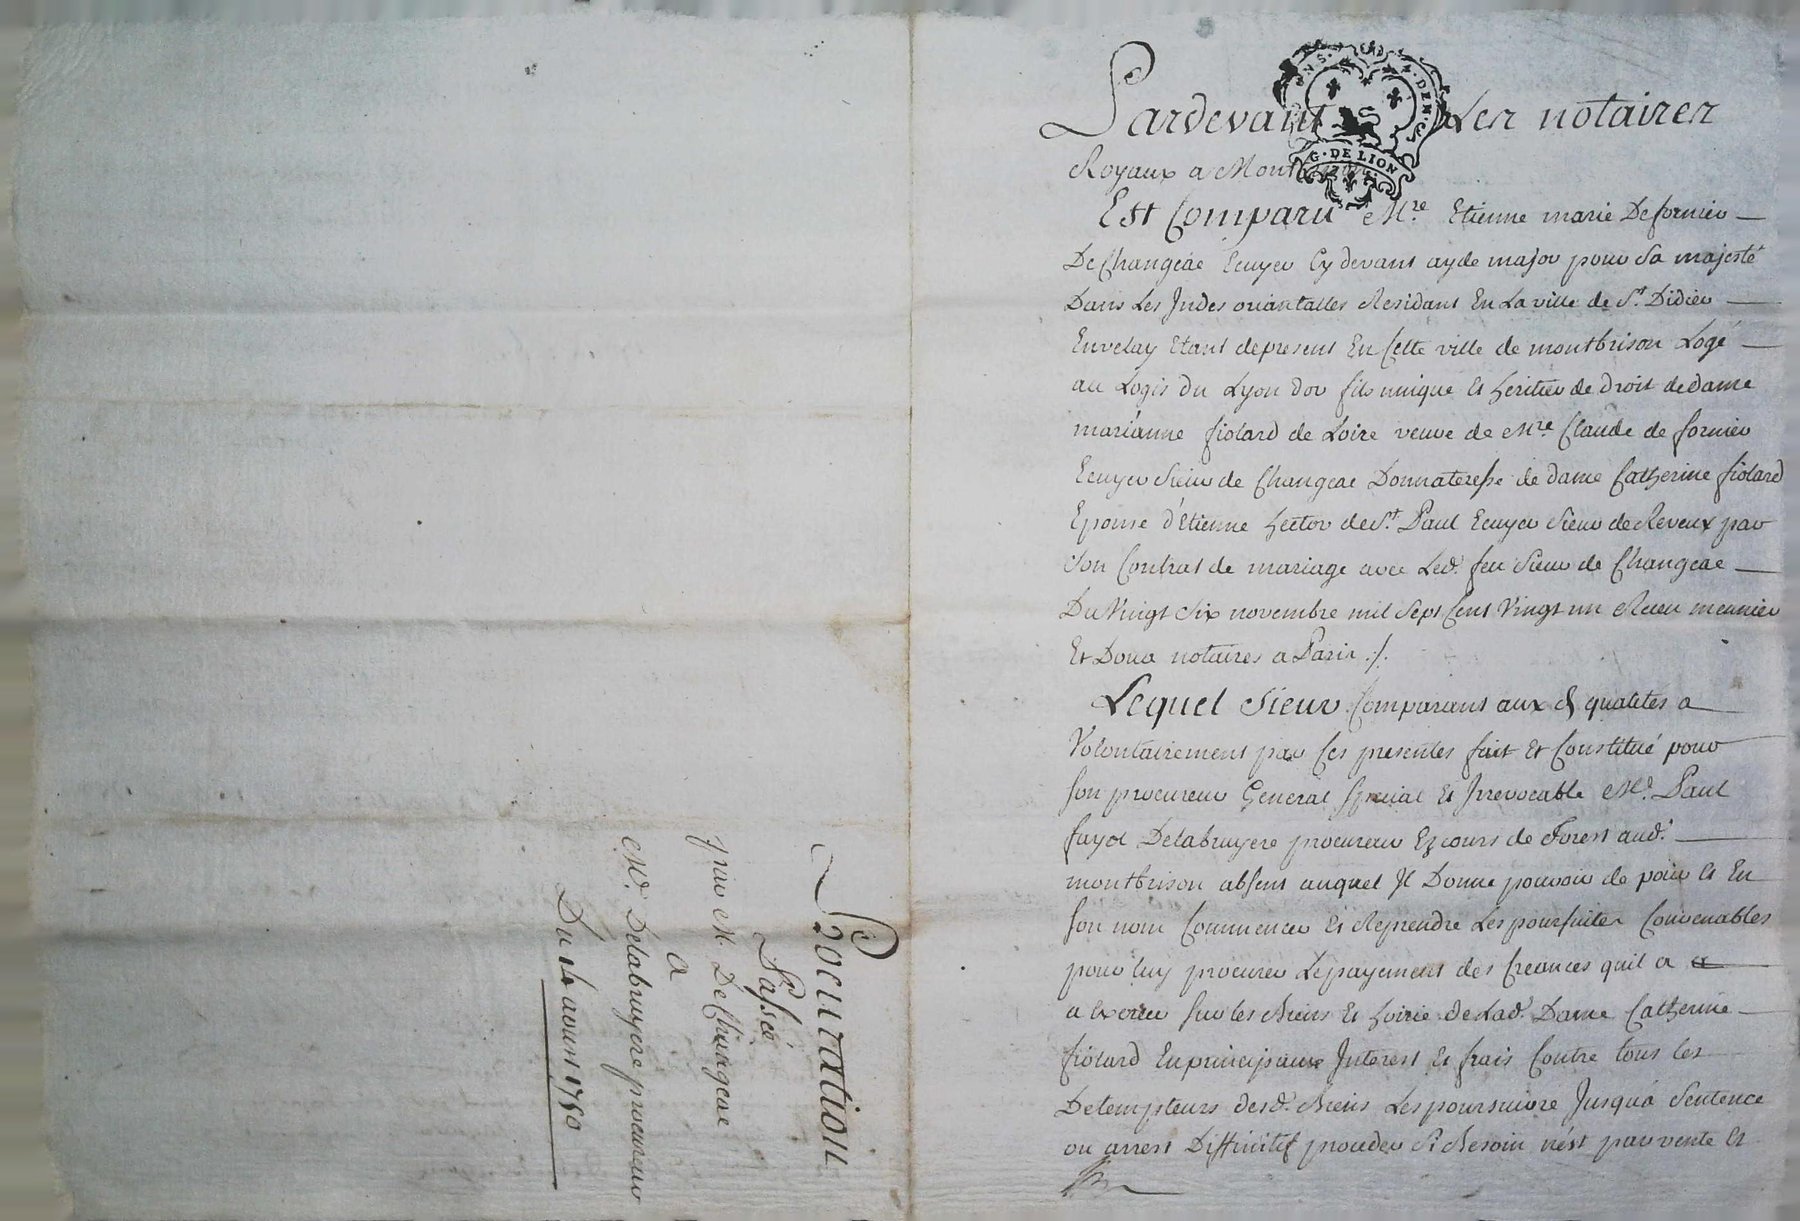 Pardevant Les notaires
Royaux a Montbrison
Est Comparu Mre Etienne marie De fornier
De Changeac Ecuyer Cy devant ayde major pour Sa majesté
Dans Les Indes oriantalles Residant En La ville de St Didier
Envelay Etant depresent En Cette ville de montbrison Logé
au Logis du Lyon dor fils unique et heritier de droit de dame
marianne fiolard de Loire veuve de Mre Claude de fornier
Ecuyer Sieur de Changeac Donnateresse de dame Catherine fiolard
Epouse d'Etienne hector de St Paul Ecuyer Sieur de Reveux par
Son Contrat de mariage avec Led. feu Sieur de Changeac
Du Vingt Six novembre mil Sept Cent Vingt un Recu meunier
Et Doua notaires a Paris ./.
Lequel Sieur Comparant aux qualites a
Volontairement par Ces presentes fait Et Constitué pour
Son procureur General Special Et Irrevocable Me. Paul
fayol Delabruyere procureur Ez cours de Forest aud.
montbrison absent auquel Il Donne pouvoir de pour Et En
Son nom Commencer Et Reprendre Les poursuites Convenables
pour luy procurer Le payement des Creances quil a a
a Exercer sur les Biens Et hoirie de Lad. Dame Catherine
fiolard En principaux Interest Et frais Contre tous les
Detempteurs desd. Biens Les poursuivre Jusquà Sentence
ou arrest Diffinitif proceder Si Besoin nést par vente Et
Procuration
Passée
par M. De Changeac
a
Me. Delabruyere procureur
Du aoust 1750
G. DE LION